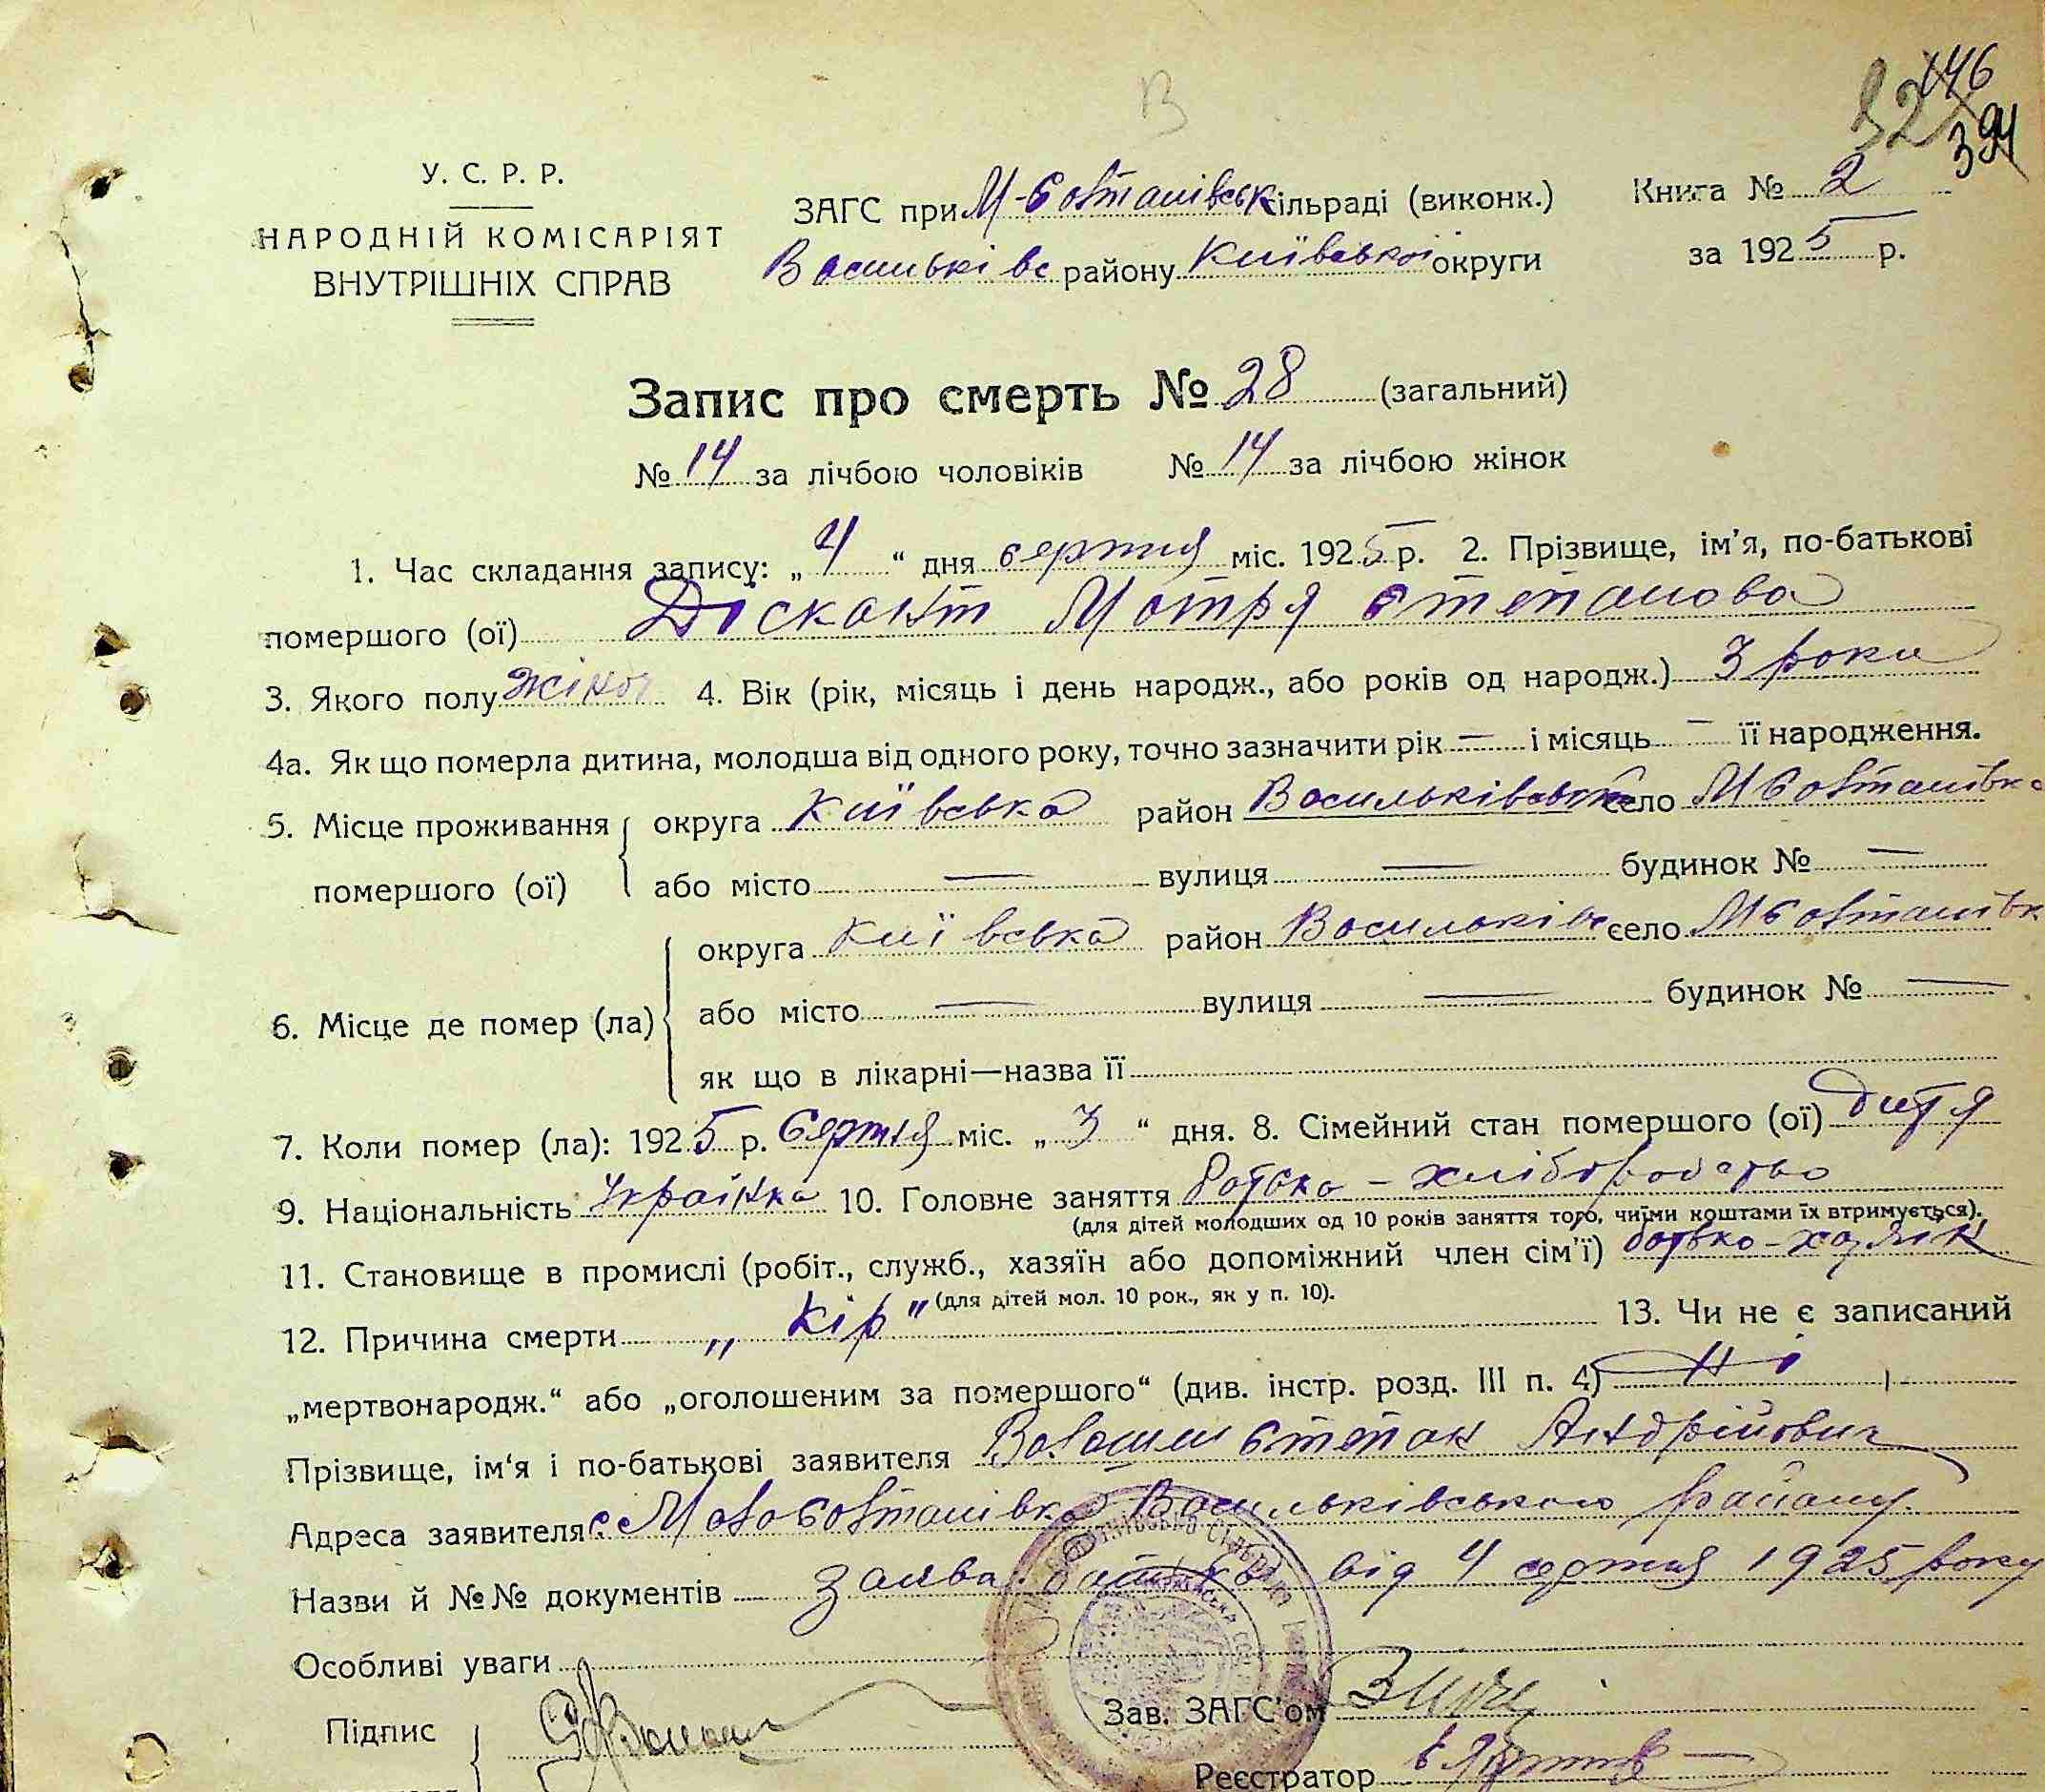 В
146
32
394
У. С. Р. Р.
НАРОДНІЙ КОМІСАРІЯТ
ВНУТРІШНІХ СПРАВ
ЗАГС при М-Солтанівськ сільраді (виконк.)
Васильківс району Київської округи
Книга № 2
за 1925 р.
Запис про смерть № 28 (загальний)
№ 14 за лічбою чоловіків № 14 за лічбою жінок
1. Час складання запису: „4“ дня серпня міс. 1925 р. 2. Прізвище, ім’я, по-батькові
помершого (ої) Діскант Мотря Степанова
3. Якого полу жіноч 4. Вік (рік, місяць і день народж., або років од народж.) 3 роки
4а. Як що померла дитина, молодша від одного року, точно зазначити рік — і місяць — її народження.
5. Місце проживання помершого (ої) округа Київська район Васильківський село МСолтанівка
або місто — вулиця — будинок № —
6. Місце де помер (ла) округа Київська район Васильківс село МСолтанівк
або місто — вулиця — будинок № —
як що в лікарні—назва її
7. Коли помер (ла): 1925 р. Серпня міс. „3“ дня. 8. Сімейний стан помершого (ої) дитя
9. Національність Українка 10. Головне заняття батько - хліборобство
(для дітей молодших од 10 років заняття того, чиїми коштами їх втримується).
11. Становище в промислі (робіт., служб., хазяїн або допоміжний член сім’ї) батько - хазяїн
(для дітей мол. 10 рок., як у п. 10).
12. Причина смерти „Кір“ 13. Чи не є записаний
„мертвонародж.“ або „оголошеним за помершого“ (див. інстр. розд. III п. 4) Ні
Прізвище, ім‘я і по-батькові заявителя Волошин Степан Андрійович
Адреса заявителя с. Малосолтанівка Васильківського району.
Назви й №№ документів Заява батька від 4 серпня 1925 року
Особливі уваги
Підпис
Зав. ЗАГС’ом
Реєстратор